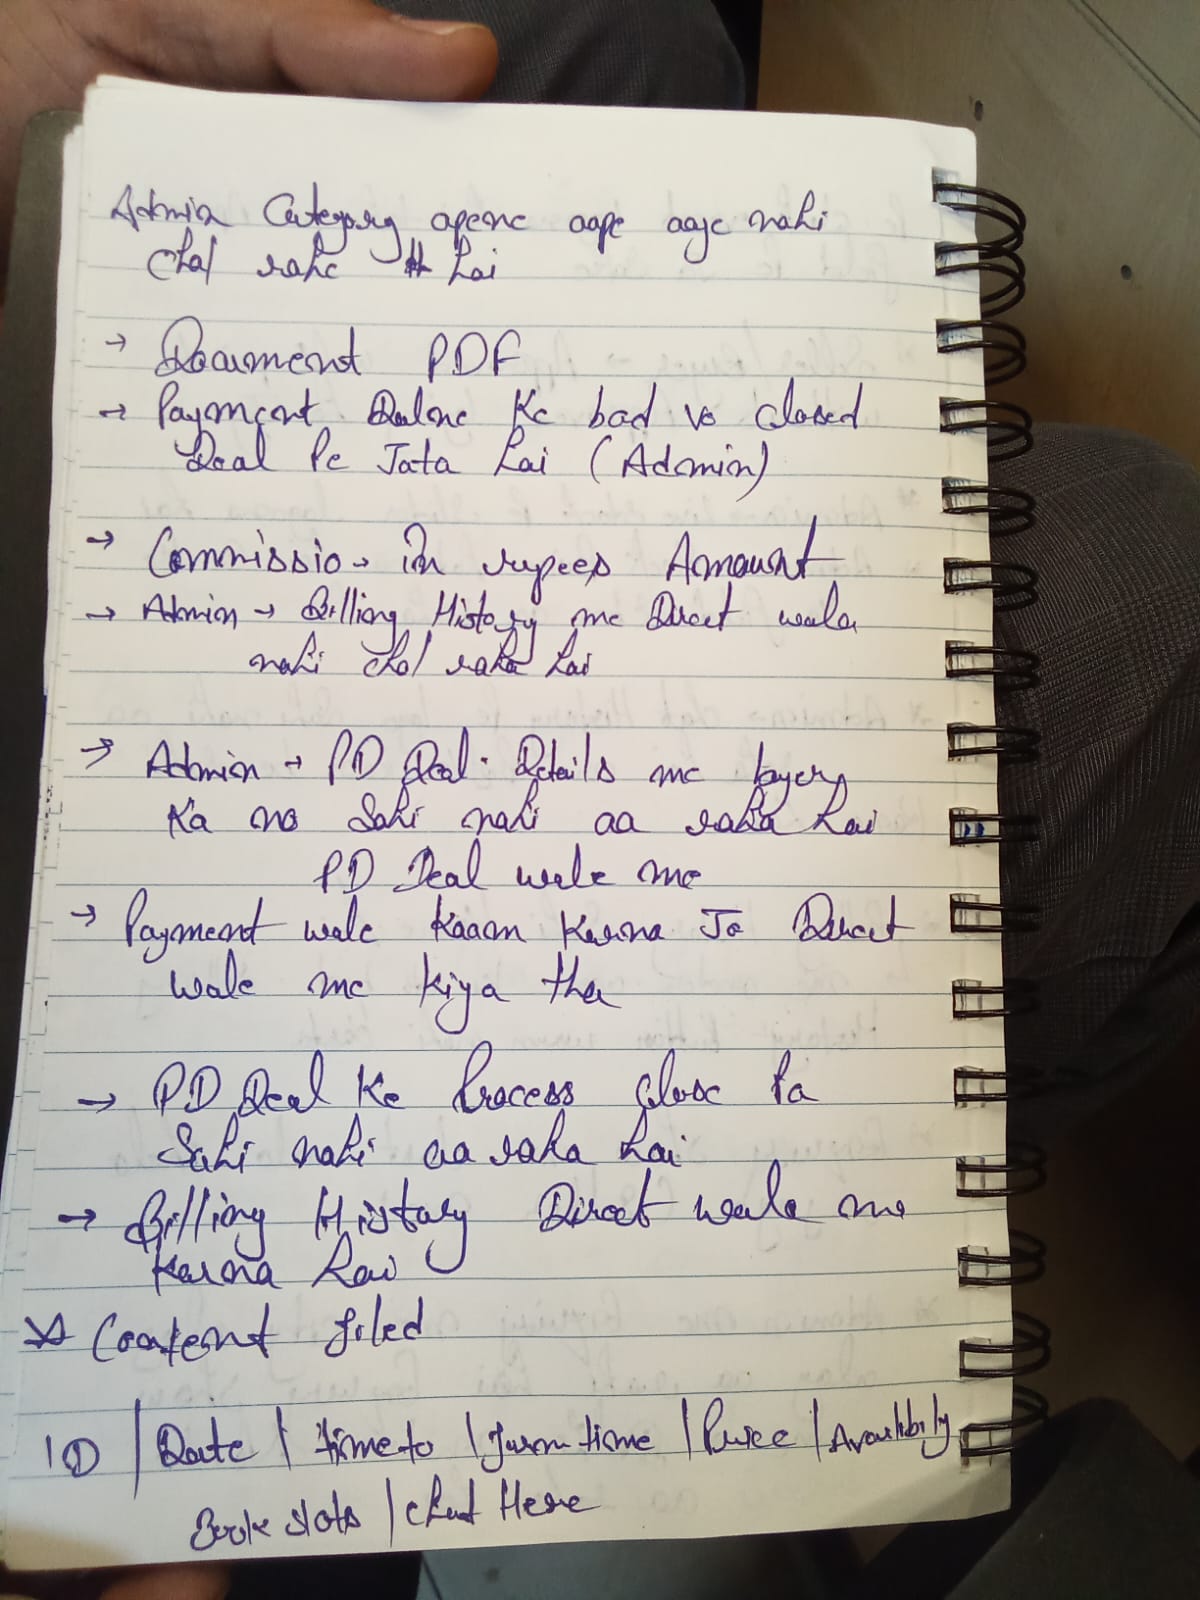 Admin Category apene aape aaye nahi
chal rahe hai
→ Document PDF
→ Payment Dalne Ke bad vo closed
Deal Pe Jata hai (Admin)
→ Commission in rupees Amount
→ Admin → Billing History me Direct wala
nahi chal raha hai
→ Admin → PD Deal Details me
Ka no Sahi nahi aa raha hai
PD Deal wale me
→ Payment wale Kaam Karna Jo Direct
wale me kiya tha
→ PD Deal Ke Process close Pa
Sahi nahi aa raha hai
→ Billing History Direct wale me
Karna hai
Content filed
ID | Date | time to | time | Price | Availibility
Book slots | Chat Here